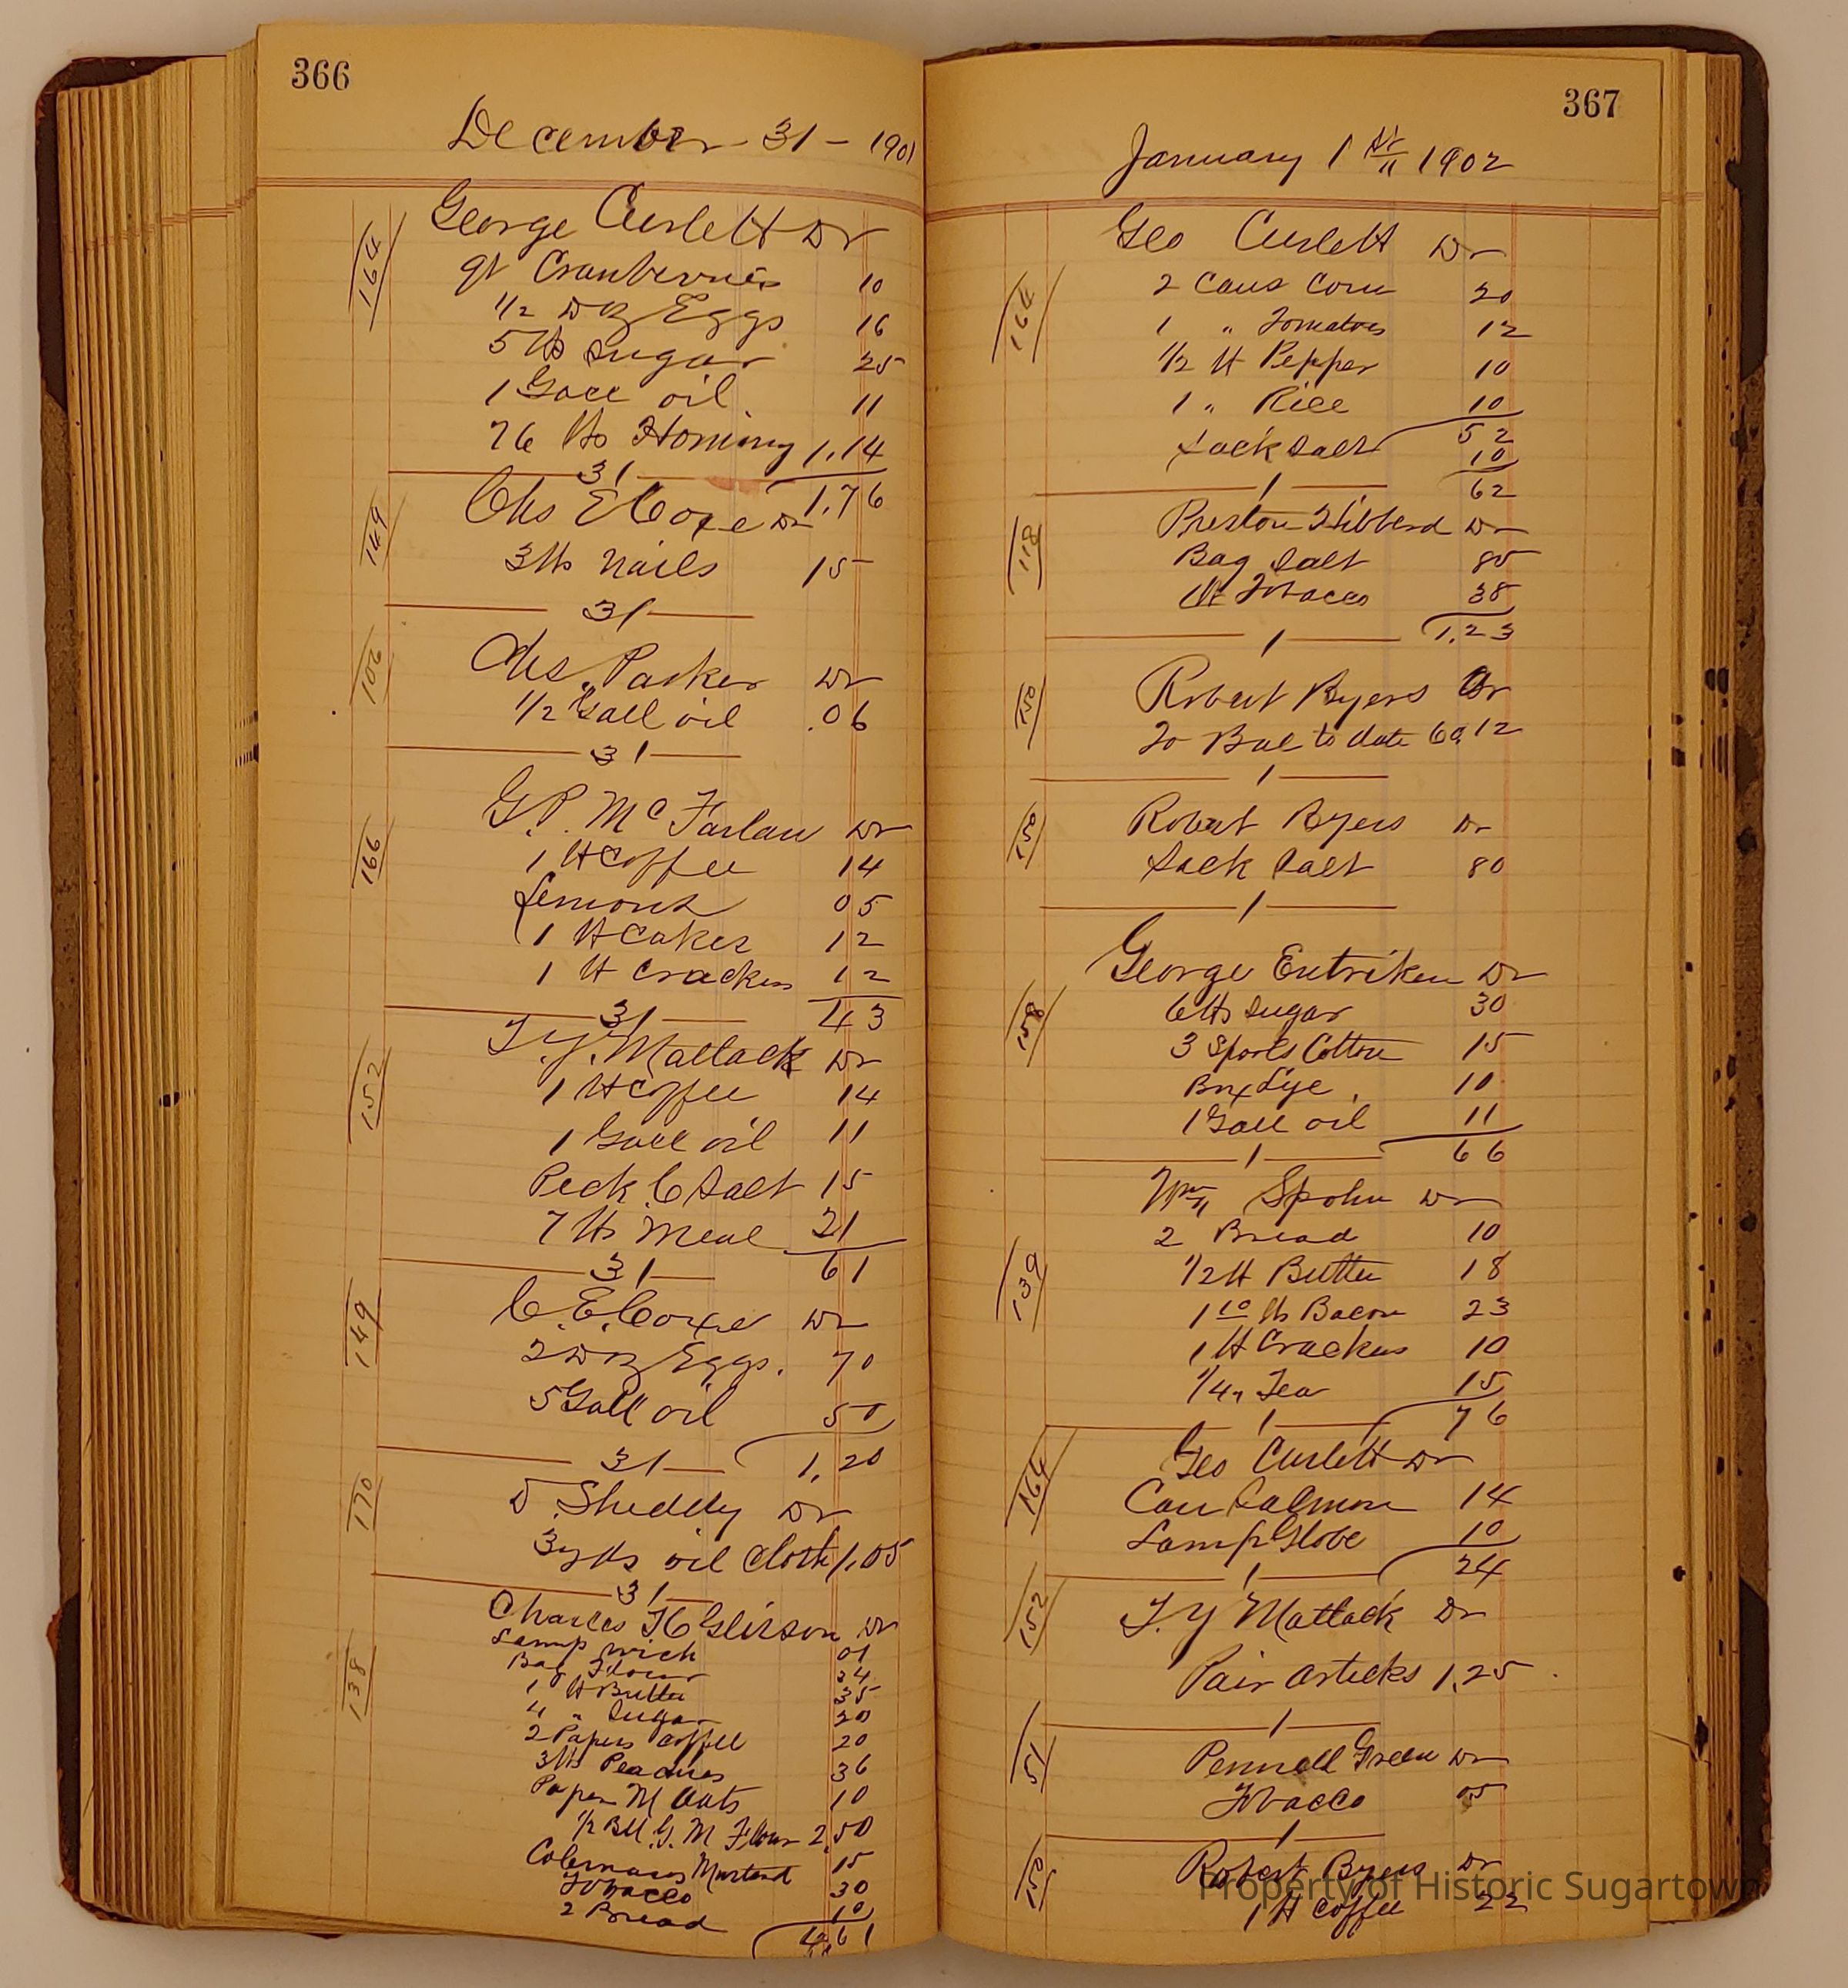 366
December - 31 - 1901
George Curlett Dr
164
qt Cranberries 10
1/2 Doz Eggs 16
5 lbs Sugar 25
1 Gall oil 11
76 lbs Hominy 1.14
31
1.76
Chs E Coxe Dr
149
3 lbs Nails 15
31
Chs. Parker Dr
106
1/2 Gall oil .06
31
G. P. Mc Farlan Dr
166
1 lb Coffee 14
Lemons 05
1 lb Cakes 12
1 lb Crackers 12
31 43
T. Y. Matlack Dr
152
1 lb Coffee 14
1 Gall oil 11
Peck C Salt 15
7 lbs Meal 21
31 61
C. E. Coxe Dr
149
2 Doz Eggs. 70
5 Gall oil 50
31 1,20
D. Sheddy Dr
170
3 yds oil cloth 1.05
31
Charles H Dr
138
Lamp wick 01
Bag Flour 34
1 lb Butter 35
4 " Sugar 20
2 Papers Coffee 20
3 lbs Peaches 36
Paper M Oats 10
1/2 Bbl G. M Flour 2,50
Mustard 15
Tobacco 30
2 Bread 10
4.61
367
January 1st 1902
Geo Curlett Dr
164
2 Cans Corn 20
1 " Tomatoes 12
1/2 lb Pepper 10
1 " Rice 10
52
Sack Salt 10
1 62
Preston Hibberd Dr
118
Bag Salt 85
1 lb Tobacco 38
1 1.23
Robert Byers
150
To Bal to date 60.12
1
Robert Byers Dr
150
Sack Salt 80
1
George Entriken Dr
158
6 lbs Sugar 30
3 Spools Cotton 15
Box Lye 10
1 Gall oil 11
1 66
Wm Spohn Dr
139
2 Bread 10
1/2 lb Butter 18
1 10 lbs Bacon 23
1 lb Crackers 10
1/4 " Tea 15
1 76
Geo Curlett Dr
164
Can Salmon 14
Lamp Globe 10
1 24
T. Y Matlack Dr
152
Pair Articks 1.25
1
Pennell Green Dr
51
Tobacco 05
1
Robert Byers Dr
150
1 lb Coffee 22
Property of Historic Sugartown